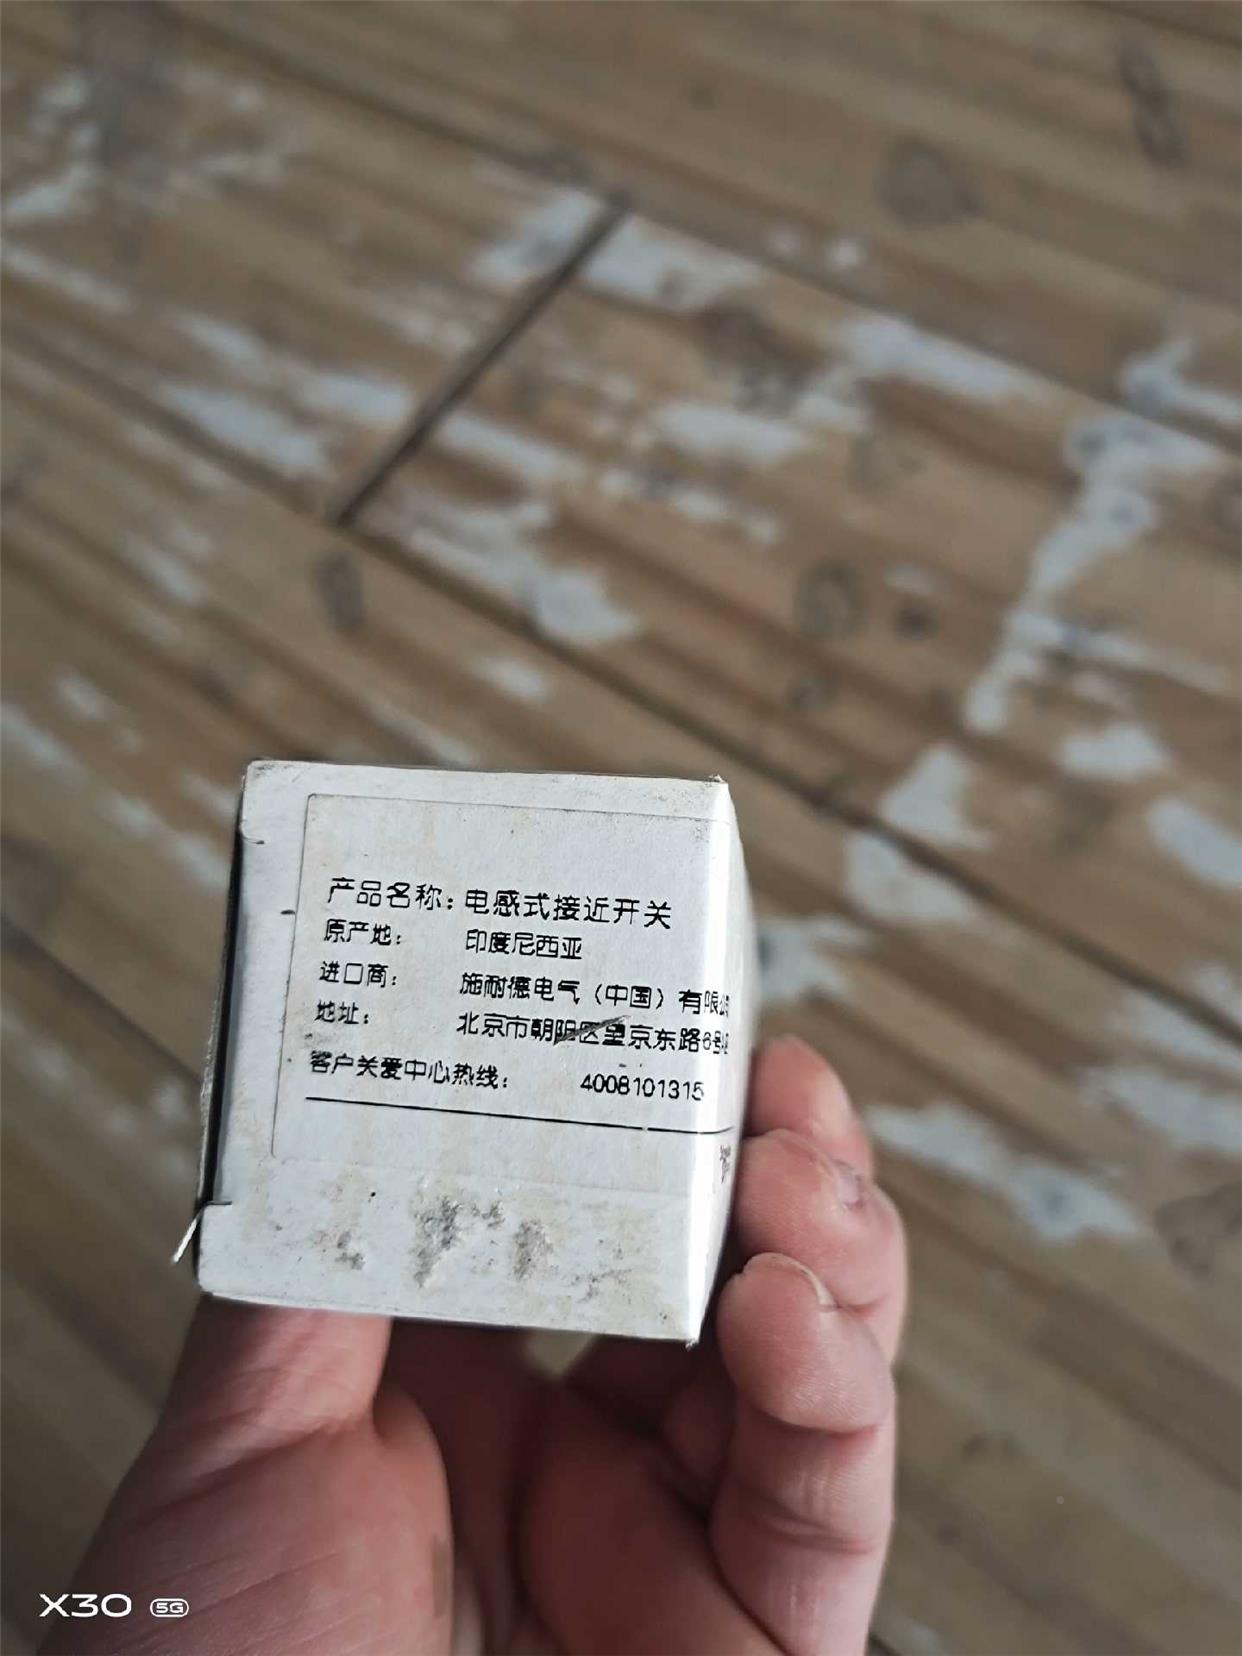 产品名称：电感式接近开关
原产地： 印度尼西亚
进口商： 施耐德电气（中国）有限公
地址： 北京市朝阳区望京东路6号
客户关爱中心热线： 4008101315
X30 5G